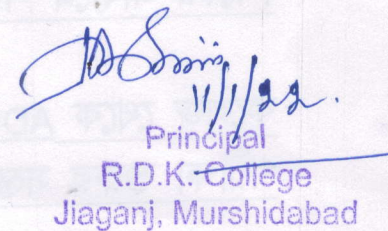 11/1/22.
Principal
R.D.K. College
Jiaganj, Murshidabad